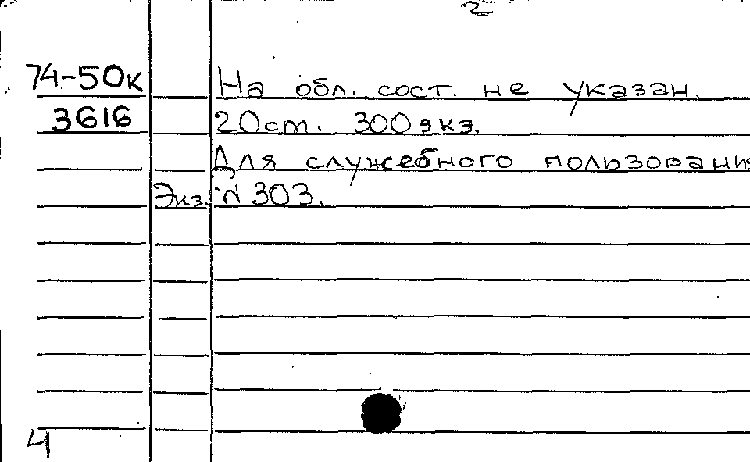 2
74-50к На обл. сост. не указан.
3616 20см. 300экз.
Для служебного пользовани
Экз. № 303.
4